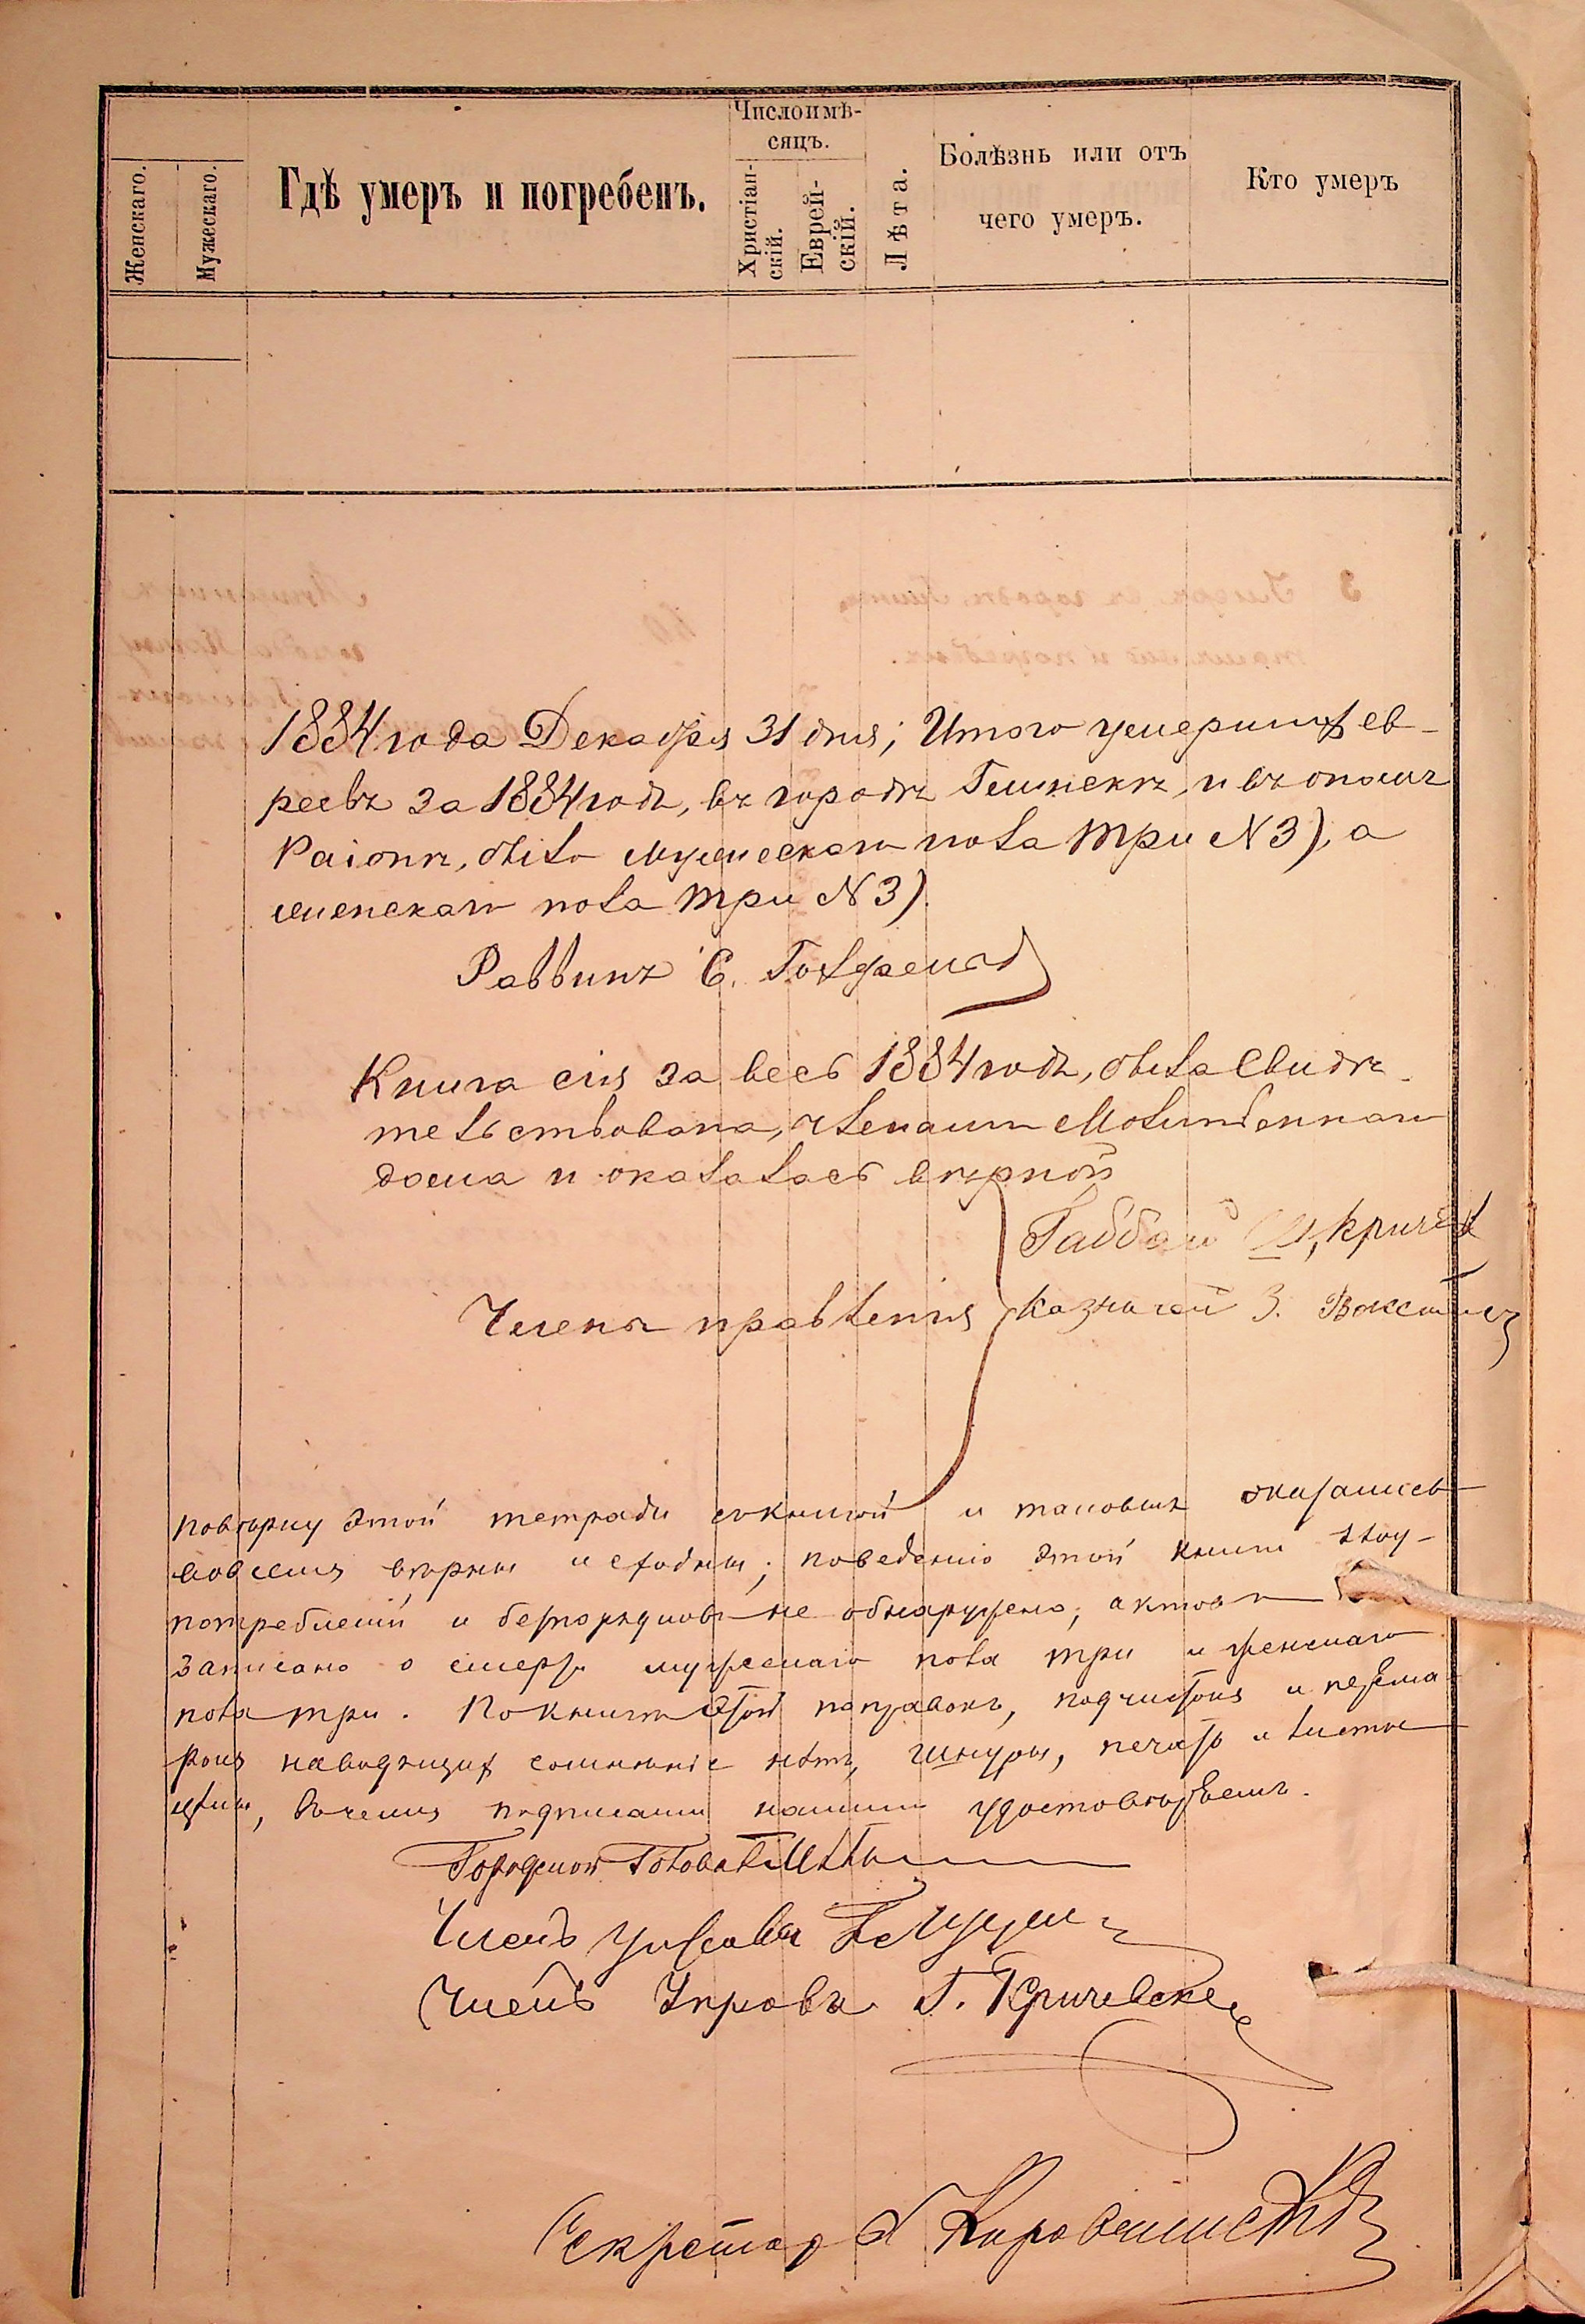 Женскаго.
Мужескаго.
Гдѣ умеръ и погребенъ.
Число и мѣ-
сяцъ.
Христіан-
скій.
Еврей-
скій.
Лѣта.
Болѣзнь или отъ
чего умеръ.
Кто умеръ
1884 года Декабря 31 дня; Итого умершихъ ев-
реевъ за 1884 годъ, въ городѣ и въ
Раіонѣ, было мужескаго пола три N 3), а
женскаго пола три N 3).
Раввинъ С.
Книга сія за весь 1884 годъ, была свидѣ-
тельствована, членами Молитвеннаго
дома и оказалась вѣрной
Габбай
Члены правленія Казначей З.
Повѣрку этой тетради съ книгой и таковыя оказались
вовсемъ вѣрны и сходны; поведенію этой книги злоу-
потребленій и безпорядковъ не обнаружено; актовъ
записано о смерти мужескаго пола три и женскаго
пола три. По книгѣ этой поправокъ, подчистокъ и перема
рокъ наводящихъ сомнѣніе нѣтъ, шнуръ, печать и листы
цѣлы, въ чемъ подписами нашими удостовѣряемъ.
Городской Голова
Членъ Управы
Членъ Управы Г. Кричевскій
Секретарь